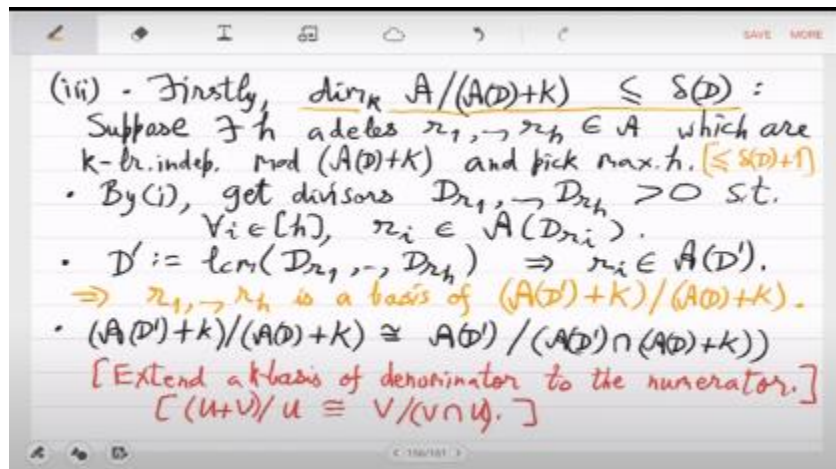 SAVE MORE
(iii) - Firstly, dim_k A/(A(D)+K) ≤ δ(D) :
Suppose ∃ h adeles r_1,-,r_h ∈ A which are
k-lr.indep. mod (A(D)+K) and pick max.h. [≤ δ(D)+1]
• By(i), get divisors D_{r_1},-,D_{r_h} >0 s.t.
∀i∈[h], r_i ∈ A(D_{r_i}).
• D' := lcm(D_{r_1},-,D_{r_h}) ⇒ r_i ∈ A(D').
⇒ r_1,-,r_h is a basis of (A(D')+K)/(A(D)+K).
• (A(D')+K)/(A(D)+K) ≅ A(D')/(A(D')∩(A(D)+K))
[Extend a k-basis of denominator to the numerator.]
[(U+V)/U ≅ V/(V∩U).]